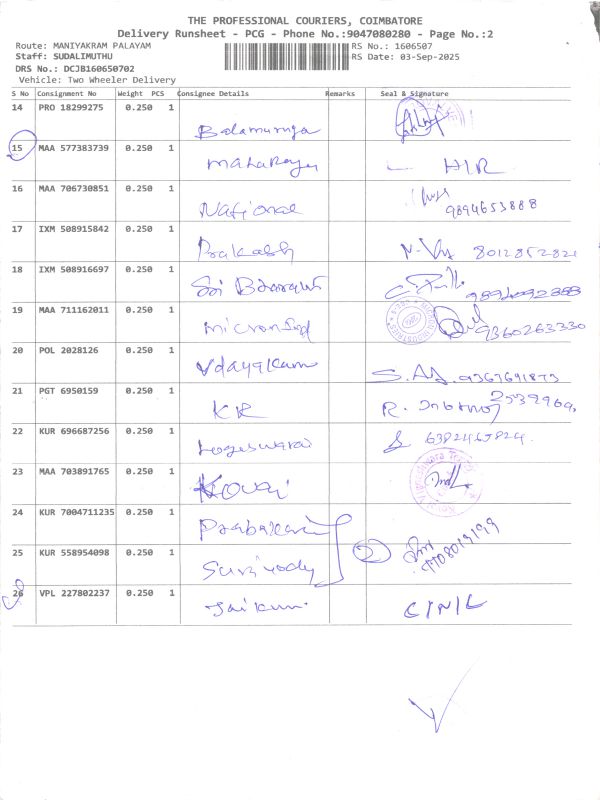 THE PROFESSIONAL COURIERS, COIMBATORE
Delivery Runsheet - PCG - Phone No.:9047080280 - Page No.:2
Route: MANIYAKRAM PALAYAM RS No.: 1606507
Staff: SUDALIMUTHU RS Date: 03-Sep-2025
DRS No.: DCJB160650702
Vehicle: Two Wheeler Delivery
S No Consignment No Weight PCS Consignee Details Remarks Seal & Signature
14 PRO 18299275 0.250 1
Balamuruga
15 MAA 577383739 0.250 1
HIR
16 MAA 706730851 0.250 1
National 9894653888
17 IXM 508915842 0.250 1
Prakash 8012852821
18 IXM 508916697 0.250 1
Sri
19 MAA 711162011 0.250 1
9360263330
20 POL 2028126 0.250 1
Udayakum
21 PGT 6950159 0.250 1
KR R.
22 KUR 696687256 0.250 1
Logeswarai
23 MAA 703891765 0.250 1
Kovai
24 KUR 7004711235 0.250 1
Prabakaran
25 KUR 558954098 0.250 1
2
26 VPL 227802237 0.250 1
Jaikum